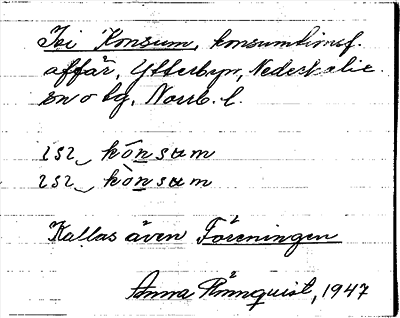 Isi Konsum, konsumtionsf.
affär, Ytterbyn, Nederkalix
sn o tg, Norrb. l.
ɪsɪ‿ kónsum
ɪsɪ‿ kònsum
Kallas även Föreningen
Anna Rönnquist, 1947